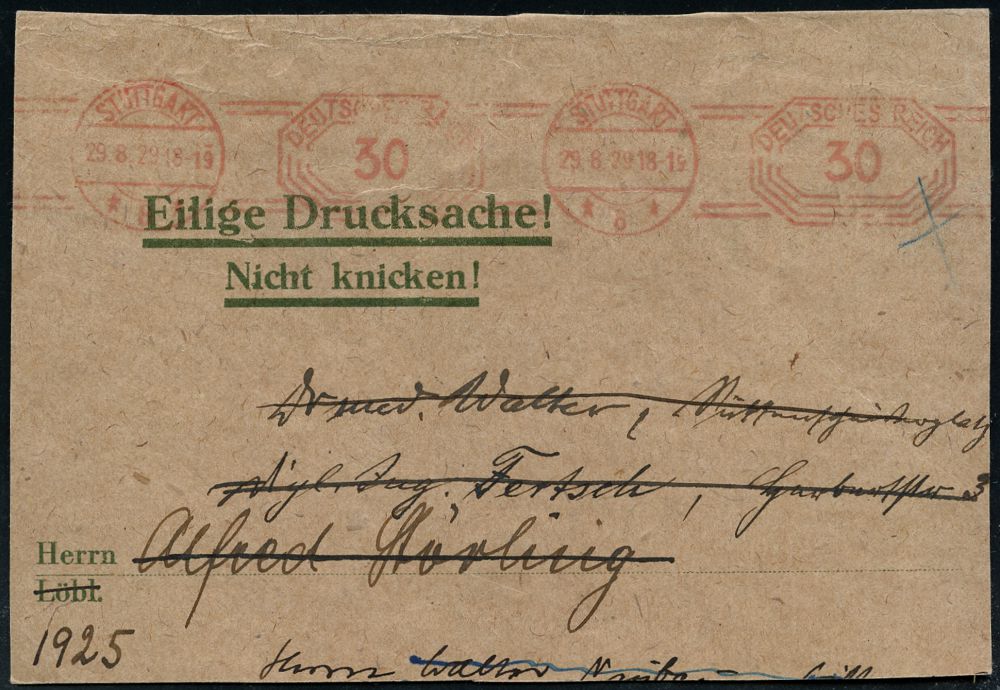 STUTTGART DEUTSCHES REICH STUTTGART DEUTSCHES REICH
29.8.29 18-19 30 29.8.29 18-19 30
* * * 6 *
Eilige Drucksache!
Nicht knicken!
Dr med. Walter,
Dipl. Ing. Fertsch, 3
Herrn Alfred Störling
Löbl.
1925
Herrn Walter